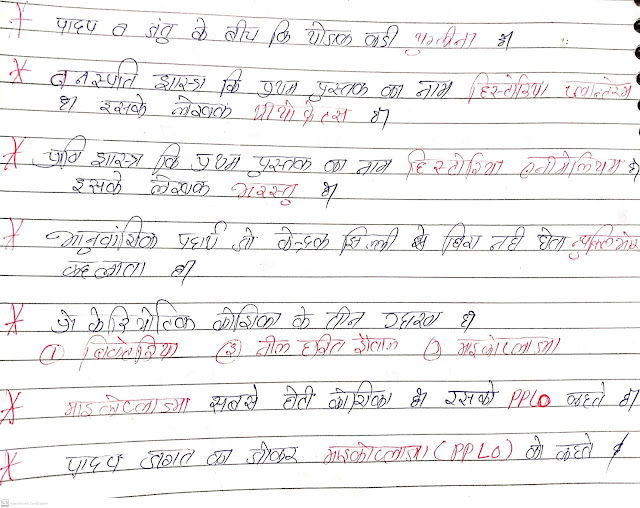 * पादप व जंतु के बीच कि योजक कडी युग्लीना है।
* वनस्पति शास्त्र कि प्रथम पुस्तक का नाम हिस्टोरिया प्लान्टेरम
है। इसके लेखक थीयोफ्रेटस है।
* प्राणि शास्त्र कि प्रथम पुस्तक का नाम हिस्टोरिया एनीमेलियम है
इसके लेखक अरस्तु है।
* आनुवांशिक पदार्थ जो केन्द्रक झिल्ली से घिरा नही होता न्युक्लिओइड
कहलाता है।
* प्रो केरियोटिक कोशिका के तीन उदाहरण है
① बैक्टेरिया ② नील हरित शैवाल ③ माइकोप्लाज्मा
* माइकोप्लाज्मा सबसे छोटी कोशिका है। इसको PPLO कहते है।
* पादप जगत का जोकर माइकोप्लाज्मा (PPLO) को कहते है